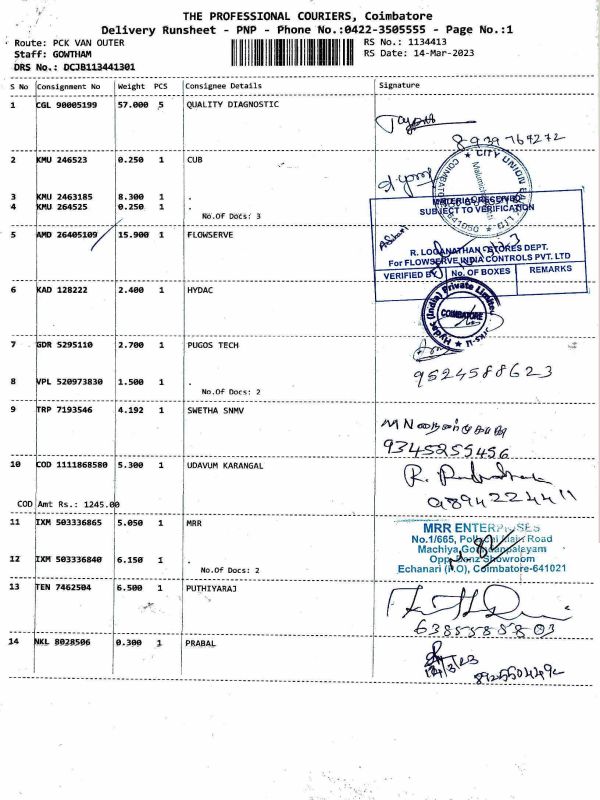 THE PROFESSIONAL COURIERS, Coimbatore
Delivery Runsheet - PNP - Phone No.:0422-3505555 - Page No.:1
Route: PCK VAN OUTER
RS No.: 1134413
Staff: GOWTHAM
RS Date: 14-Mar-2023
DRS No.: DCJB113441301
S No Consignment No Weight PCS Consignee Details Signature
1 CGL 90005199 57.000 5 QUALITY DIAGNOSTIC
8939769272
2 KMU 246523 0.250 1 CUB
CITY UNION BANK LTD
3 KMU 2463185 8.300 1 .
4 KMU 264525 0.250 1 .
No.Of Docs: 3
MATERIAL RECEIVED
SUBJECT TO VERIFICATION
5 AMD 26405109 15.900 1 FLOWSERVE
R. LOGANATHAN, STORES DEPT.
For FLOWSERVE INDIA CONTROLS PVT. LTD
VERIFIED BY No. OF BOXES REMARKS
6 KAD 128222 2.400 1 HYDAC
Hydac (India) Private Limited
COIMBATORE
7 GDR 5295110 2.700 1 PUGOS TECH
9524588623
8 VPL 520973830 1.500 1 .
No.Of Docs: 2
9 TRP 7193546 4.192 1 SWETHA SNMV
9345255456
10 COD 1111868580 5.300 1 UDAVUM KARANGAL
9894224411
COD Amt Rs.: 1245.00
11 IXM 503336865 5.050 1 MRR
MRR ENTERPRISES
No.1/665, Main Road
Machiya
Opp. Showroom
Echanari (P.O), Coimbatore-641021
12 IXM 503336840 6.150 1 .
No.Of Docs: 2
13 TEN 7462504 6.500 1 PUTHIYARAJ
14 NKL 8028506 0.300 1 PRABAL
14/3/23